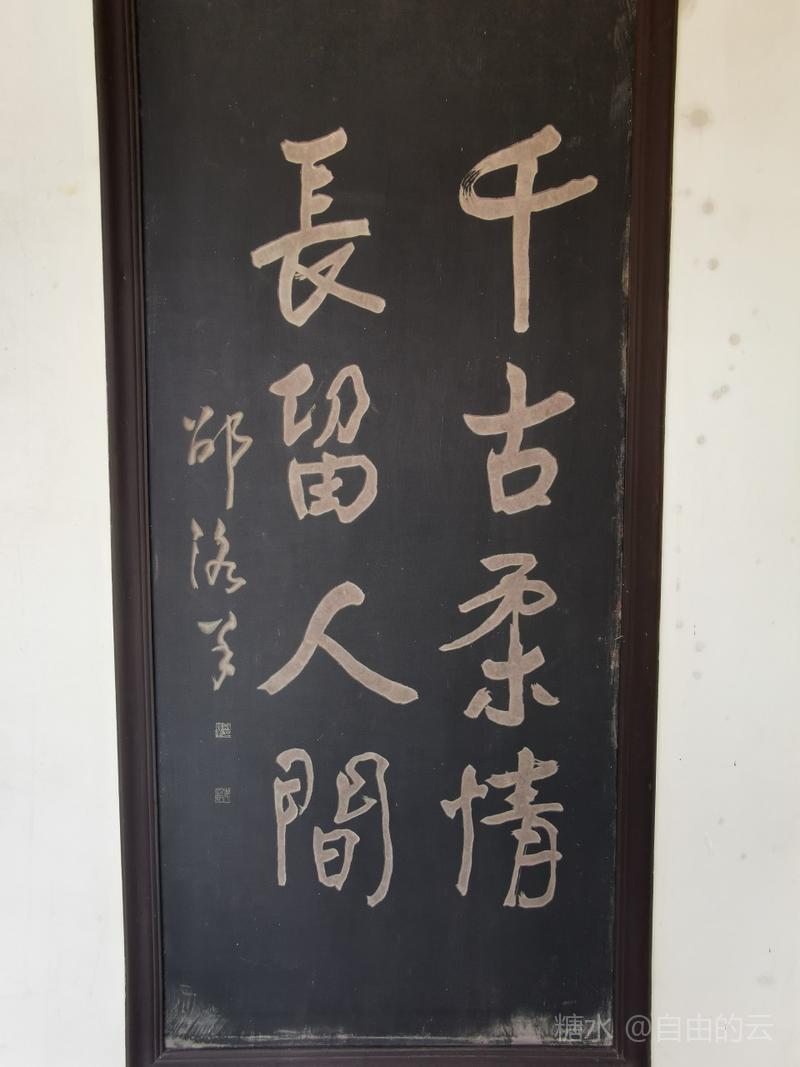 千古柔情
長留人間
邵洛羊
糖水 @自由的云